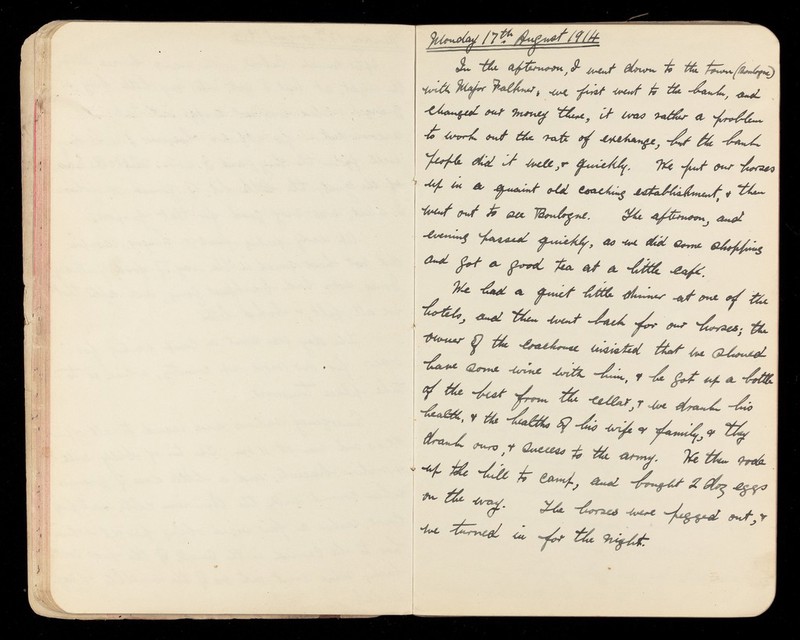 Monday 17th August 1914
In the afternoon, I went down to the town (Boulogne)
with Major Falkner, we first went to the bank, and
changed our money there, it was rather a problem
to work out the rate of exchange, but the bank
people did it well, & quickly. We put our horses
up in a quaint old coaching establishment, & then
went out to see Boulogne. The afternoon, and
evening passed quickly, as we did some shopping
and got a good tea at a little café.
We had a quiet little dinner at one of the
hotels, and then went back for our horses; the
owner of the coachhouse insisted that we should
have some wine with him, & he got up a bottle
of the best from the cellar, & we drank his
health, & the healths of his wife & family, & they
drank ours, & success to the army. We then rode
up the hill to camp, and bought 2 doz eggs
on the way. The horses were pegged out, &
we turned in for the night.